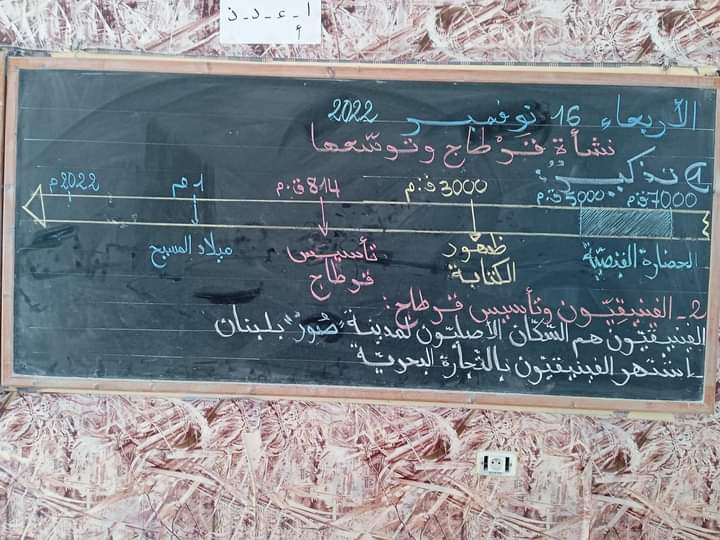 أ - ع - د - ذ
الأربعاء 16 نوفمبر 2022
نشأة قرطاج وتوسّعها
1 تذكير:
7000 ق م 5000 ق.م 3000 ق.م 814 ق.م 1 م 2022 م
الحضارة القفصيّة ظهور الكتابة تأسيس قرطاج ميلاد المسيح
2 - الفينيقيّون وتأسيس قرطاج:
الفينيقيّون هم السّكّان الأصليّون لمدينة "صُورْ" بلبنان
- اشتهر الفينيقيّون بالتّجارة البحريّة